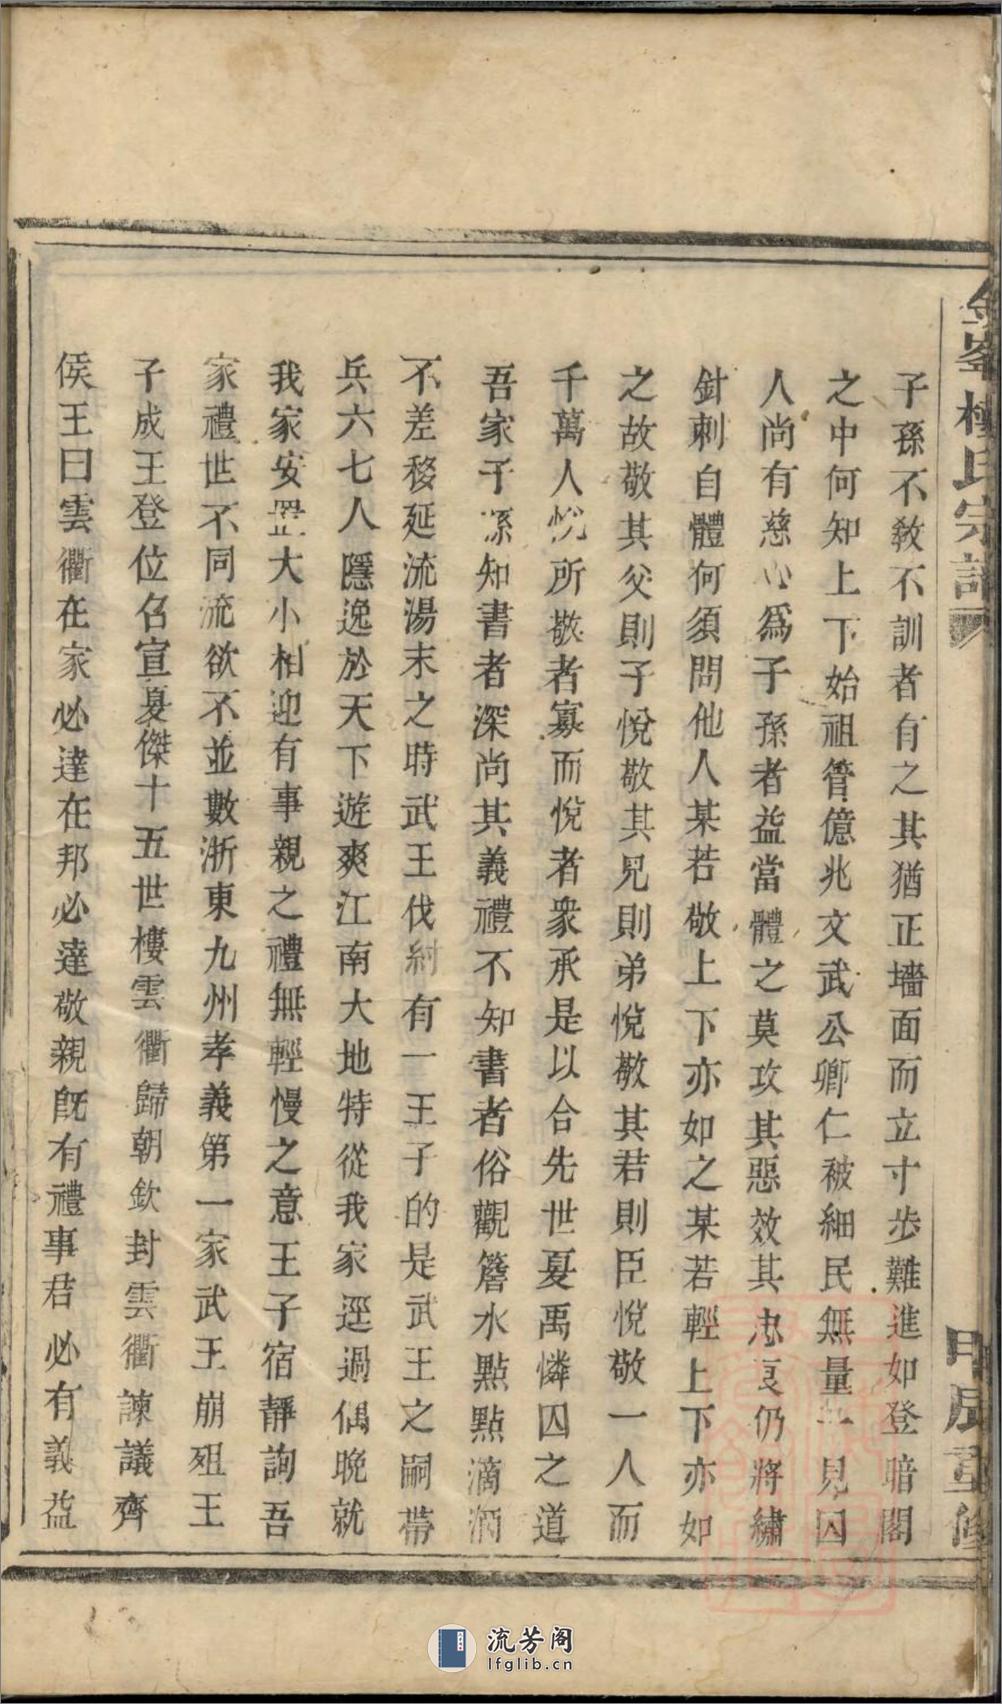 樓氏宗譜
重修
子孫不敎不訓者有之其猶正墻面而立寸步難進如登暗閣
之中何知上下始祖管億兆文武公卿仁被細民無量一見囚
人尚有慈心爲子孫者益當體之莫攻其惡效其忠良仍將繡
針刺自體何須問他人某若敬上下亦如之某若輕上下亦如
之故敬其父則子悅敬其兄則弟悅敬其君則臣悅敬一人而
千萬人悅所敬者寡而悅者衆承是以合先世夏禹憐囚之道
吾家子孫知書者深尚其義禮不知書者俗觀簷水點點滴
不差移延流湯末之時武王伐紂有一王子的是武王之嗣帶
兵六七人隱逸於天下遊爽江南大地特從我家逕過偶晚就
我家安置大小相迎有事親之禮無輕慢之意王子宿靜詢吾
家禮世不同流欲不並數浙東九州孝義第一家武王崩殂王
子成王登位名宣夏傑十五世樓雲衢歸朝欽封雲衢諫議齊
侯王曰雲衢在家必達在邦必達敬親旣有禮事君必有義益
流芳阁
lfglib.cn